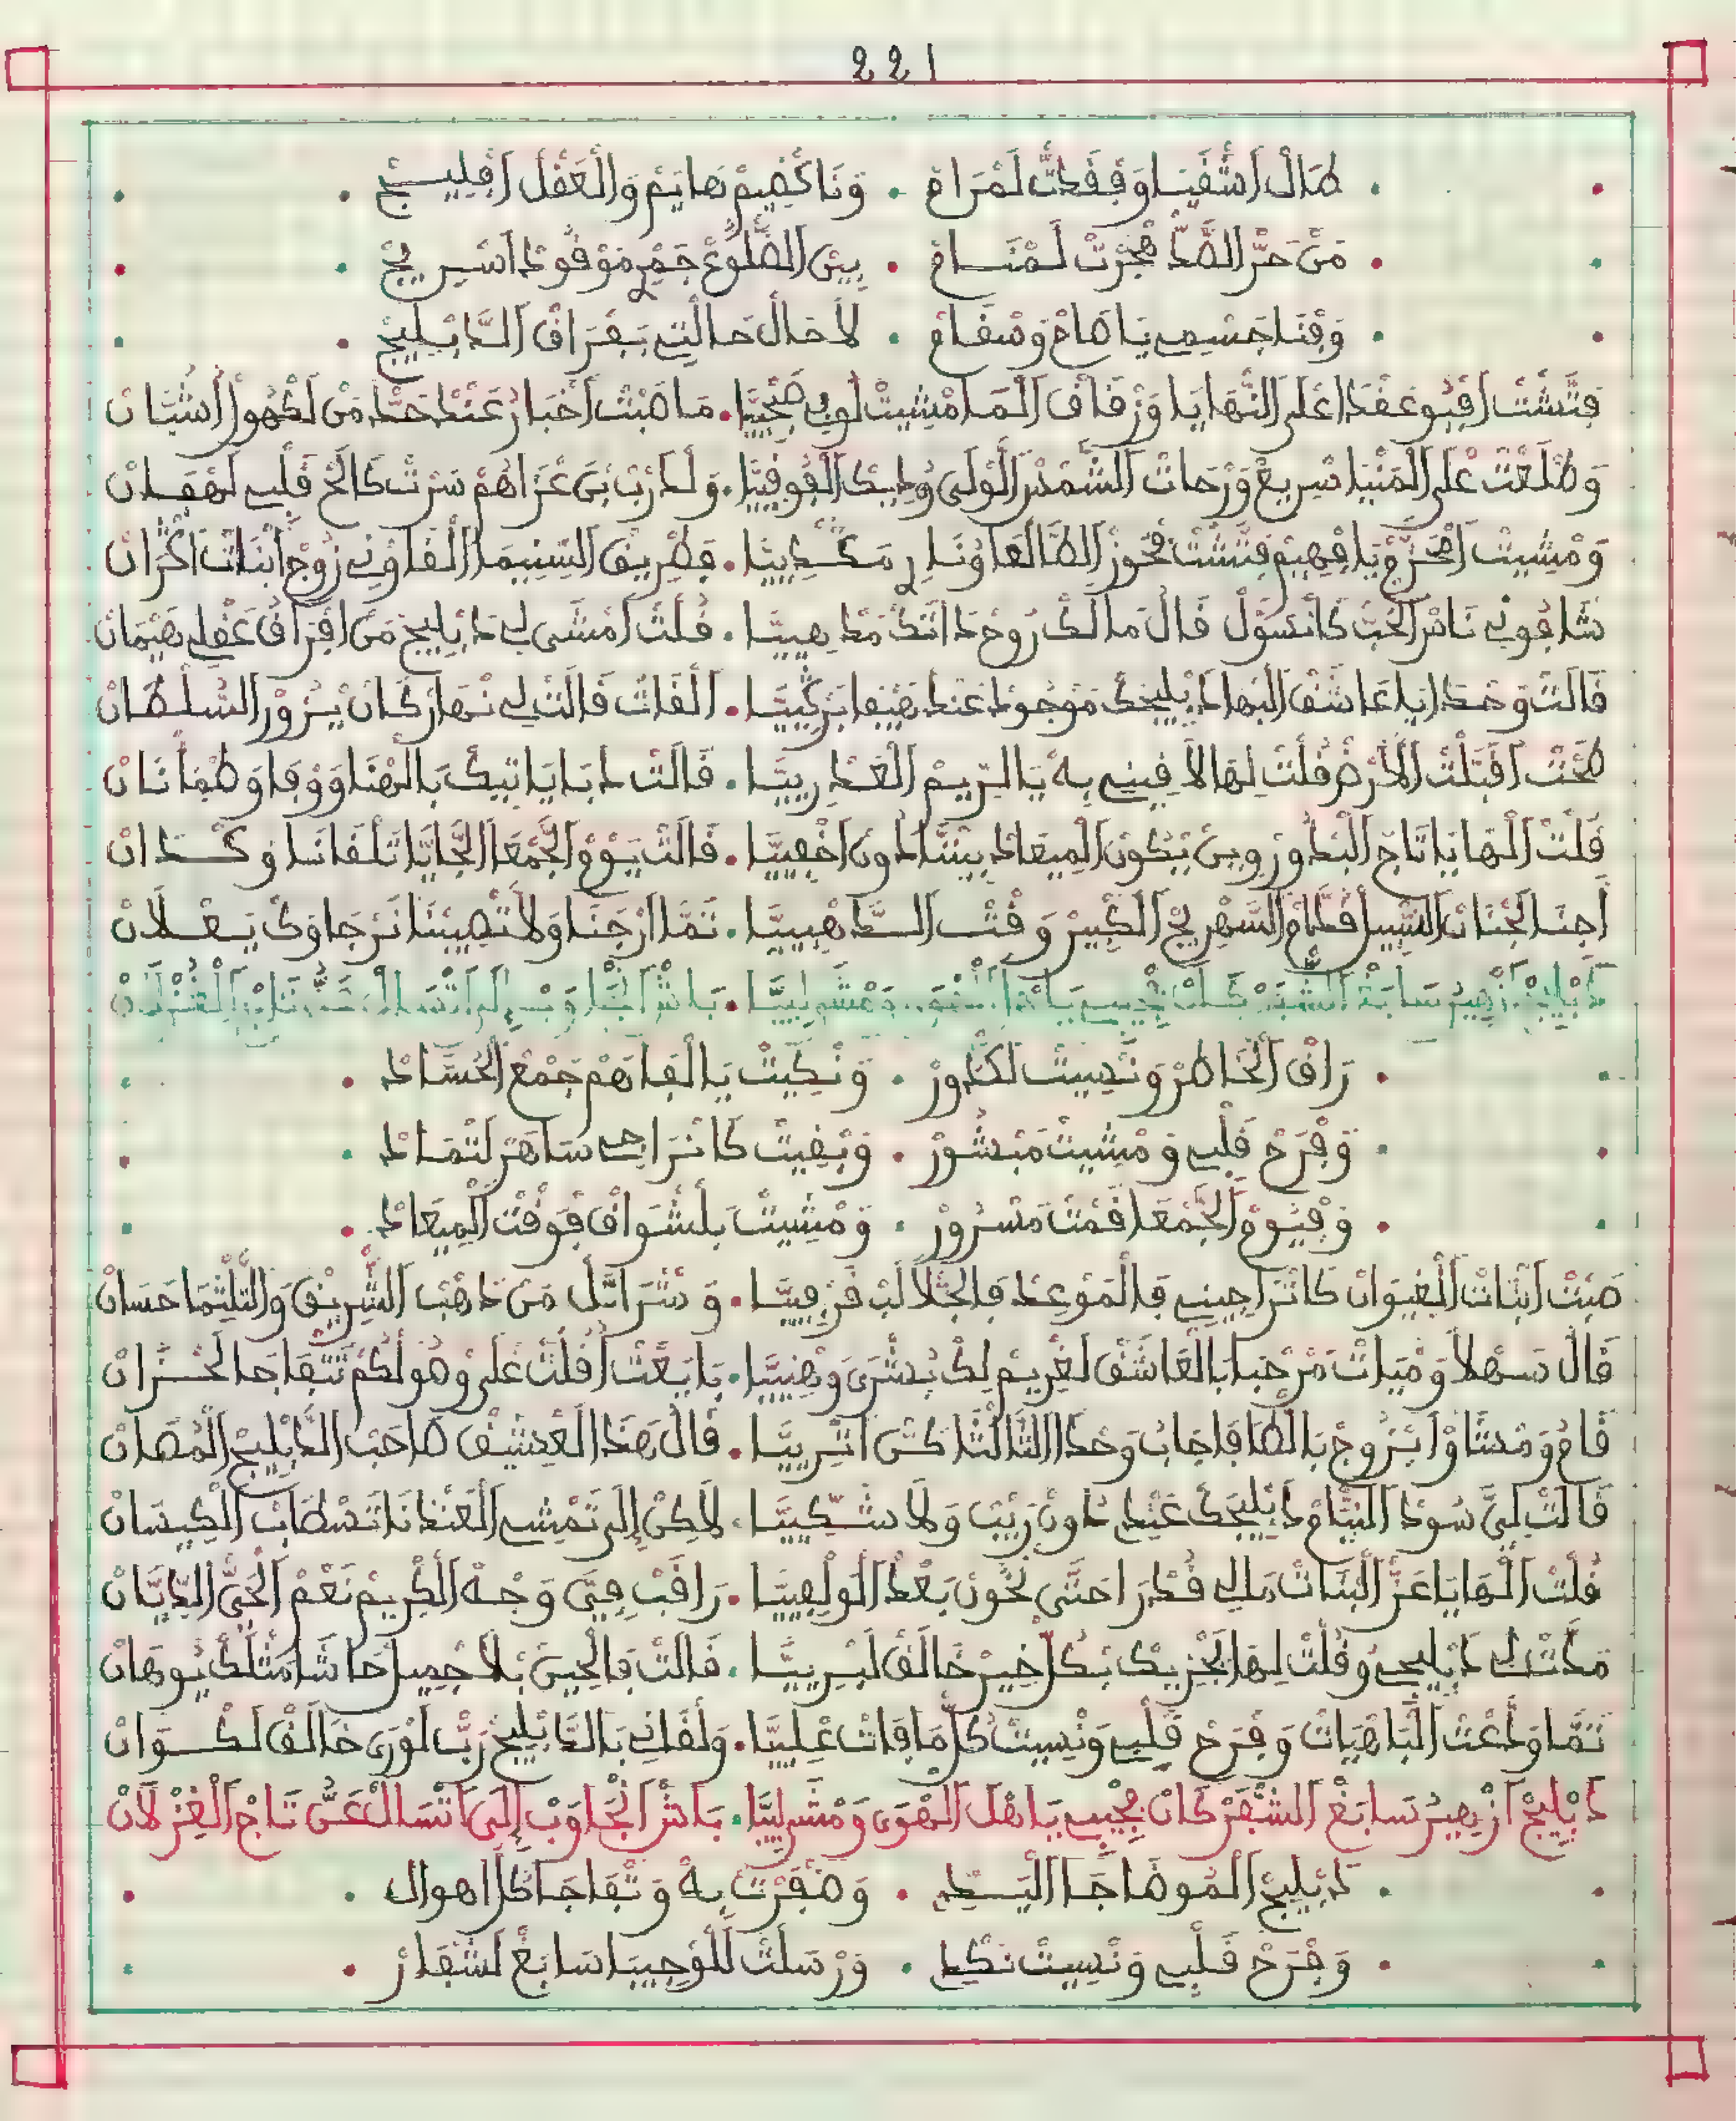 221
طَالْ اَشْقَيَا وَفْقَدْتْ لَمْرَامْ . وَنَا كْضِيمْ هَايَمْ وَالْعَقْلْ اَفْلِيجْ
مَنْ حَرّ الصَّدْ هْجَرْتْ لَمْنَامْ . بِينْ الضْلُوعْ جَمْرِ مَوْقُودْ اَسْرِيجْ
وَفْنَا جَسْمِي يَا صَاحْ وَسْقَامْ . لَا حَالْ حَالْتِي بَفْرَاقْ الدَّبْلِيجْ
فَتَّشْتْ اَقْبُو عَقْدَا عْلَى النّْهَايَا وَزْقَاقْ الْمَا مْشِيتْ لُو فِي صْحِيَّا . مَا صَبْتْ اَخْبَارُ عَنْدْ حَدّْ مَنْ لَكْهُولْ اَشْبَانْ
وَطْلَعْتْ عْلَى الْمَنْيَا سْرِيعْ وَرْحَاتْ الشَّمْسْ الْوْلَى وُدِيكْ الْفُوقِيَّا . وَلَدْرْبْ بَنْ عَزَاهُمْ سَرْتْ كَالَحْ قَلْبِي لَهْفَانْ
وَمْشِيتْ اَلْحَزّْ يَا فْهِيمْ فَتَّشْتْ نْحُوزْ الطَّالْعَا وُنَارِ مَكْدِيَّا . فَطْرِيقْ السِّنِيمَا اَلْقَاوْنِي زُوجْ اَبْنَاتْ اَكْرَانْ
شَافُونِي نَاسْ الْحُبّْ كَانْسَوّلْ قَالْ مَا لَكْ رُوحْدَاتَكْ مَدْهِيَّا . قُلْتْ اَمْشَى لِي دَبْلِيجْ مَنْ اَفْرَاقُ عَقْلِي هَيْمَانْ
قَالَتْ وَحْدَا يَا عَاشَقْ الْبْهَا دَبْلِيجَكْ مَوْجُودْ عَنْدْ هَيْفَا تَرْكِيَّا . اَلْقَاتُ قَالَتْ لِي نْهَارْ كَانْ يْزُورْ السُّلْطَانْ
طَحْتْ اَقَبَّلْتْ الْاَرْضْ قُلْتْ لِهَا لَاقِينِي بِهْ يَا الرِّيمْ الْعَدْرِيَّا . قَالَتْ دَابَا يَاتِيكْ بَالْهْنَا وَوْفَا وَطْمَانَانْ
قُلْتْ اَلْهَا يَا تَاجْ الْبْدُورْ وِينْ يْكُونْ الْمِيعَادْ بِينْنَا دُونْ اَخْفِيَّا . قَالَتْ يَوْمْ الْجَمْعَا الْجَّايَّا تَلْقَانَا وَكْدَانْ
اَجْنَا الْجْنَانْ السّْبِيلْ قَدَّامْ السَّهْرِيجْ الْكْبِيرْ وَقْتْ السَّدْهْبِيَّا . تَمَّا اَرْجَنَا وَلَا تْصِيبْنَا نَرْجَاوَكْ يَا فْلَانْ
دَبْلِيجْ اَزْهِيرُ سَابَغْ الشّْفَرْ كَانْ فْجِيبِي يَا هْلْ الْهْوَى وَمْشَى لِيَّا . بَاشْ اَنْجَاوَبْ اِلَى اَتْسَالْ عَنُّ تَاجْ الْغُزْلَانْ
رَاقْ الْخَاطْرْ وَنْسِيتْ لَكْدُورْ . وَنْكِيتْ يَا الْفَاهَمْ جَمْعْ الْحُسَّادْ
وَفْرَحْ قَلْبِي وَمْشِيتْ مَبْشُورْ . وَبْقِيتْ كَانْرَاجِي سَاهَرْ لَتْمَادْ
وَفْيُومْ الْجَمْعَا قَمْتْ مَسْرُورْ . وَمْشِيتْ بَلْشْوَاقْ فَوْقْتْ الْمِيعَادْ
صَبْتْ اَبْنَاتْ الْغِيوَانْ كَاتْرَاجِينِي فَالْمَوْعِدْ فَالْجْلَالَبْ قَرْفِيَّا . وَسْرَاتَلْ مَنْ دَهْبْ الشّْرِيقْ وَالتّْلْتْمَا حَسَانْ
قَالْ سَهْلَا وَمْيَاتْ مَرْحْبَا بَالْعَاشَقْ لَغْرِيمْ لِكْ بُشْرَى وَهْنِيَّا . يَا بَعَّتْ اَقُلْتْ عَلَى وْهُولْكُمْ تَتْفَاجَا الْحْزَانْ
قَامُ وَمْشَاوْا بَزُوجْ بَالطَّافَا جَابُ وَحْدَا التَّالْتَا كَنْ اَتْرِيَّا . قَالْ هَذَا الْعْشِيقْ صَاحَبْ الدَّبْلِيجْ الْمُصَانْ
قَالَتْ لِيَّ سُودْ النْيَامْ دَبْلِيجَكْ عَنْدِي دُونْ رَيْبْ وَلَا شَكِّيَّا . لَاكِنْ اِلَى تَمْشِي لْعَنْدْنَا تَسْطَابْ الْكِيسَانْ
قُلْتْ اَلْهَا يَا عَزّْ الْبْنَاتْ مَا لِي قُدْرَا حَتَّى نْخُونْ بَعْدْ الْوَلْفِيَّا . رَاقَبْ فِيَّ وَجْهْ الْكْرِيمْ نَعْمْ الْحَيّْ الدِّيَّانْ
مَدَّتْ لِي دَبْلِيجِي وُقُلْتْ لِهَا يْجْزِيكْ بْكُلّْ خِيرْ خَالَقْ لَبْرِيَّا . قَالَتْ فَالْحِينْ بْلَا جْمِيلْ حَاشَا مَتْلَكْ يُوهَانْ
تَمَّا وَدَّعْتْ الْبَاهْيَاتْ وَفْرَحْ قَلْبِي وَنْسِيتْ كُلّْ مَا فَاتْ عْلِيَّا . وَلْقَانِي بَالدَّبْلِيجْ رَبّْ لَوْرَى خَالَقْ لَكْوَانْ
دَبْلِيجْ اَزْهِيرُ سَابَغْ الشّْفَرْ كَانْ فْجِيبِي يَا هْلْ الْهْوَى وَمْشَى لِيَّا . بَاشْ اَنْجَاوَبْ اِلَى اَتْسَالْ عَنُّ تَاجْ الْغِزْلَانْ
دَبْلِيجْ الْمُوهَا جَا الْيَدِّي . وَضْفَرْتْ بِهْ وَتْفَاجَا كُلّْ اَهْوَالْ
وَفْرَحْ قَلْبِي وَنْسِيتْ نَكْدِي . وَرْسَلْتْ لَلْوْجِيبَا سَابَغْ لَشْفَارْ